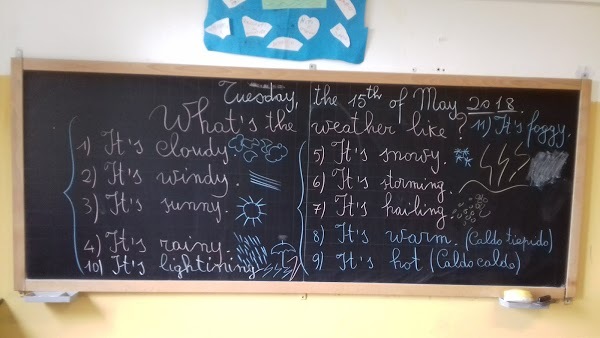 Tuesday, the 15th of May 2018.
What's the weather like?
1) It's cloudy.
2) It's windy.
3) It's sunny.
4) It's rainy.
10) It's lightining
5) It's snowy.
6) It's storming.
7) It's hailing.
8) It's warm. (Caldo tiepido)
9) It's hot (Caldo caldo)
11) It's foggy.